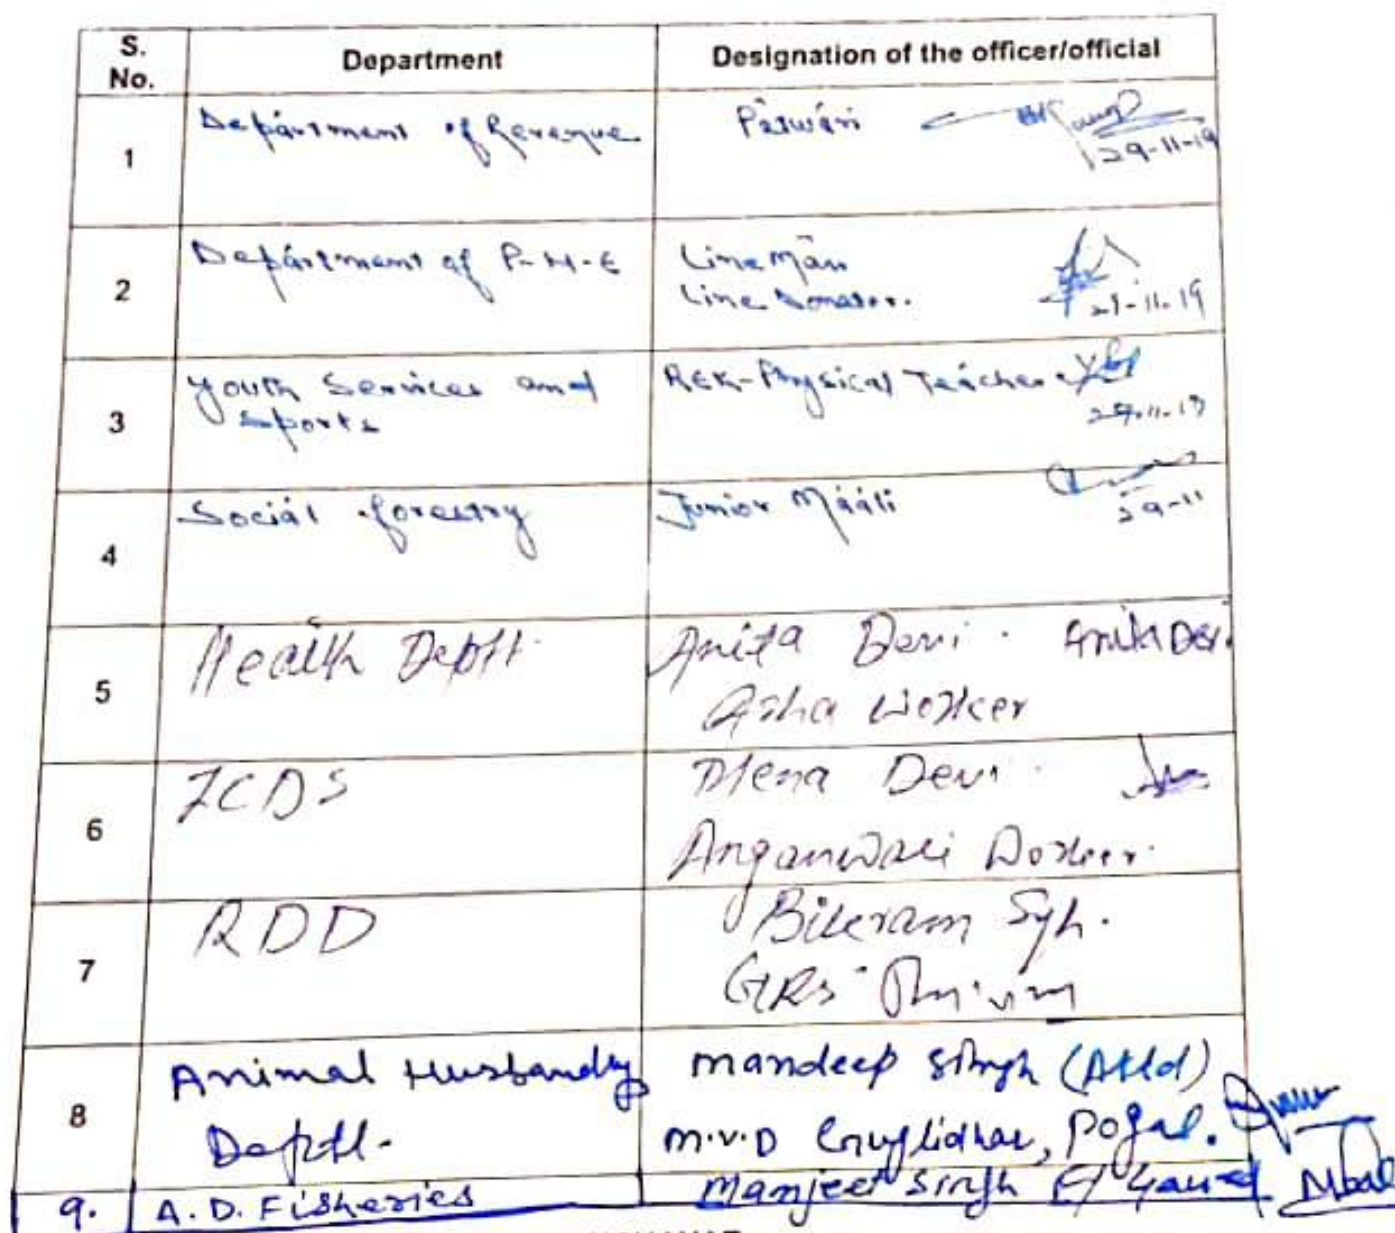 S. No. Department Designation of the officer/official
1 Department of Revenue Patwari
29-11-19
2 Department of P-H-E Line Man
Line
29-11-19
3 Youth Services and Sports REK-Physical Teacher
29-11-19
4 Social forestry Junior Mááli
29-11
5 Health Deptt. Anita Devi. Anita Devi
Asha Worker
6 ICDS Mena Devi.
Anganwari Worker.
7 RDD Bikram Sgh.
GRS
8 Animal Husbandry Mandeep Singh
Deptt. M.V.D Pogal.
9. A.D. Fisheries Manjeet Singh